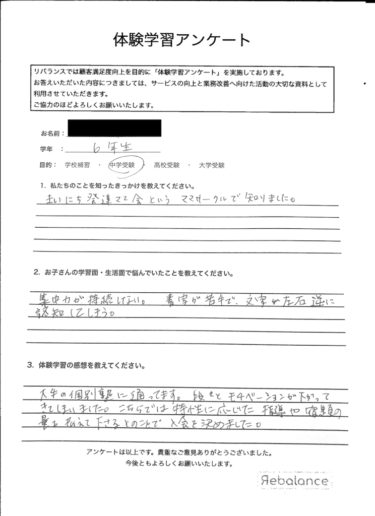 体験学習アンケート
リバランスでは顧客満足度向上を目的に「体験学習アンケート」を実施しております。
お答えいただいた内容につきましては、サービスの向上と業務改善へ向けた活動の大切な資料として
利用させていただきます。
ご協力のほどよろしくお願いいたします。
お名前：
学年　：　6年生
目的：　学校補習　・　中学受験　・　高校受験　・　大学受験
1．私たちのことを知ったきっかけを教えてください。
発達ママ会という ママサークルで 知りました。
2．お子さんの学習面・生活面で悩んでいたことを教えてください。
集中力が持続しない。 書字が苦手で、文字が左右逆に
認知してしまう。
3．体験学習の感想を教えてください。
大手の個別塾に通ってます。 モチベーションが下がって
きてしまいました。こちらでは 特性に応じた 指導や 宿題の
量も 教えて下さるとのことで 入会を決めました。
アンケートは以上です。貴重なご意見ありがとうございました。
今後ともよろしくお願いいたします。
Rebalance